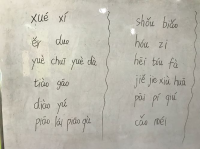 xué xí
ěr duo
yuè chī yuè dà
tiào gāo
diào yú
piāo lái piāo qù
shǒu biǎo
hóu zi
hēi tóu fà
jiě jie xiù huā
pāi pí qiú
cǎo méi